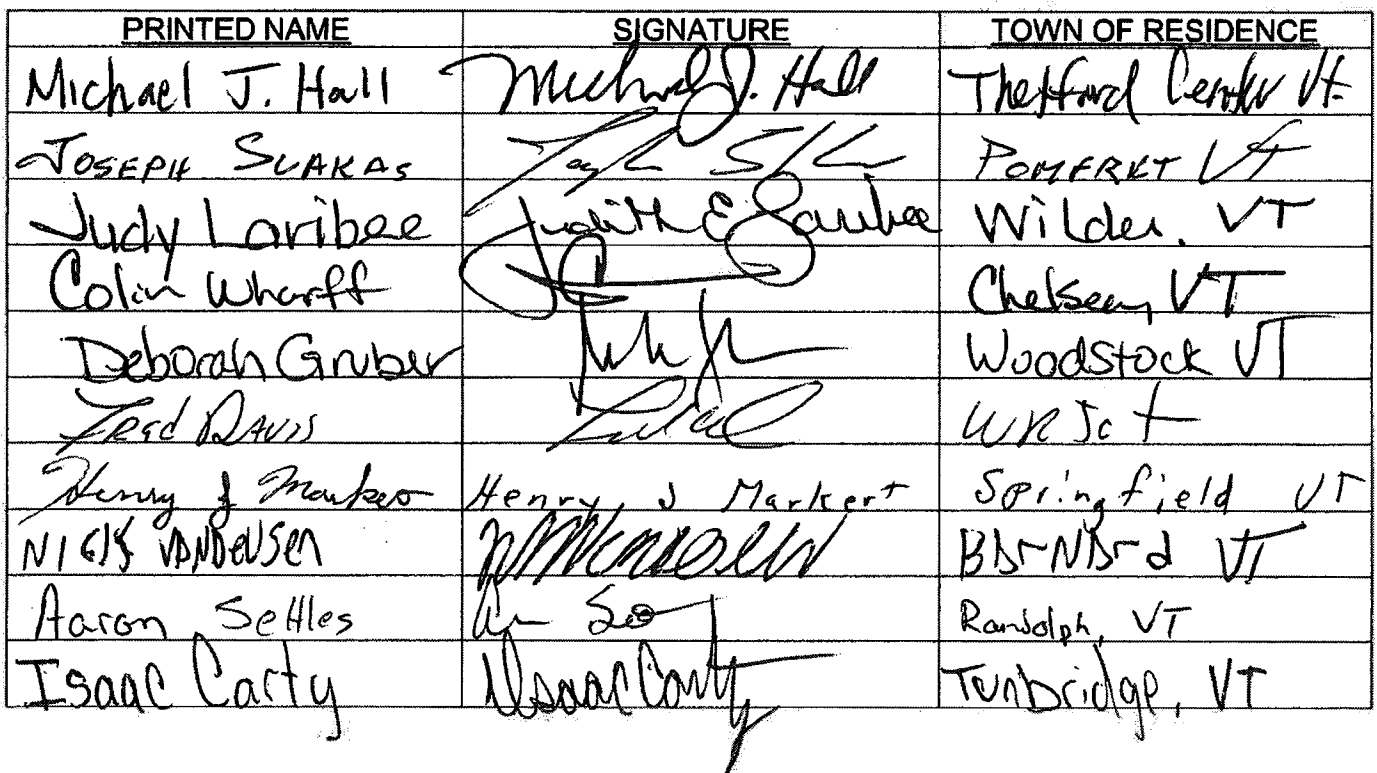 PRINTED NAME SIGNATURE TOWN OF RESIDENCE
Michael J. Hall Michael J. Hall Thetford Center Vt.
JOSEPH SLAKAS POMFRET VT
Judy Laribee Judith E Laribee Wilder, VT
Colin Wharff Chelsea, VT
Deborah Gruber Woodstock VT
Fred DAVIS WR Jct
Henry J Markert Henry J Markert Springfield VT
NICK VANDEUSEN BarNard VT
Aaron Settles Randolph, VT
Isaac Carty Isaac Carty Tunbridge, VT